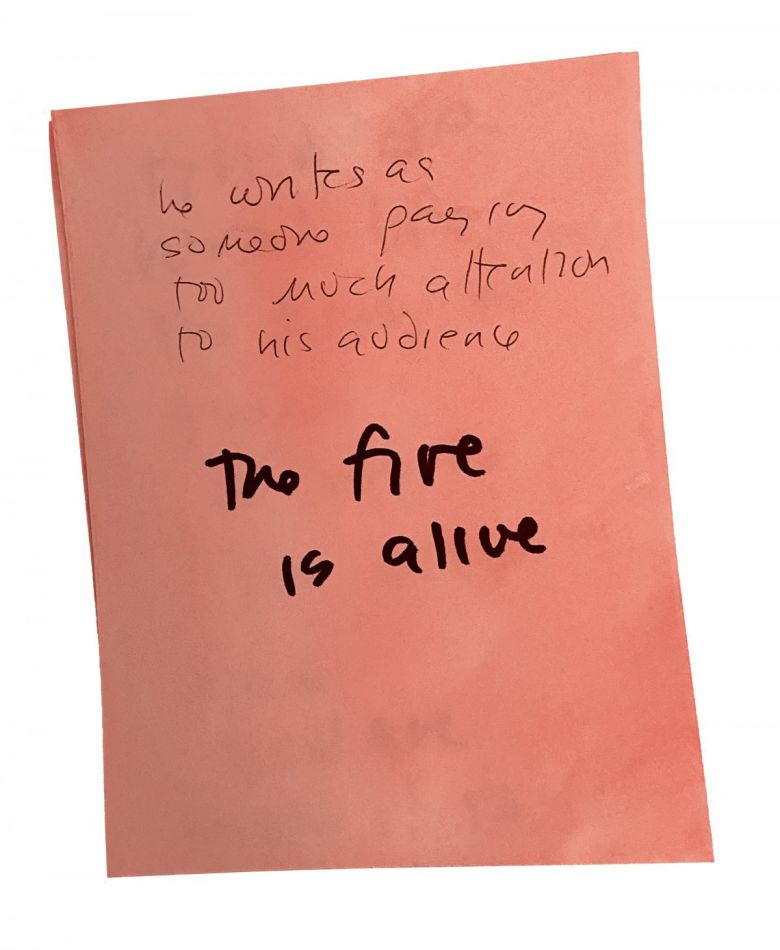 he writes as
someone paying
too much attention
to his audience
The fire
is alive